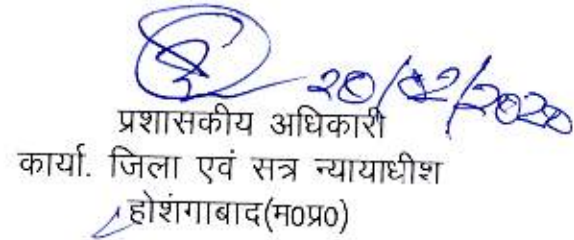 20/02/2020
प्रशासकीय अधिकारी
कार्या. जिला एवं सत्र न्यायाधीश
होशंगाबाद(म0प्र0)